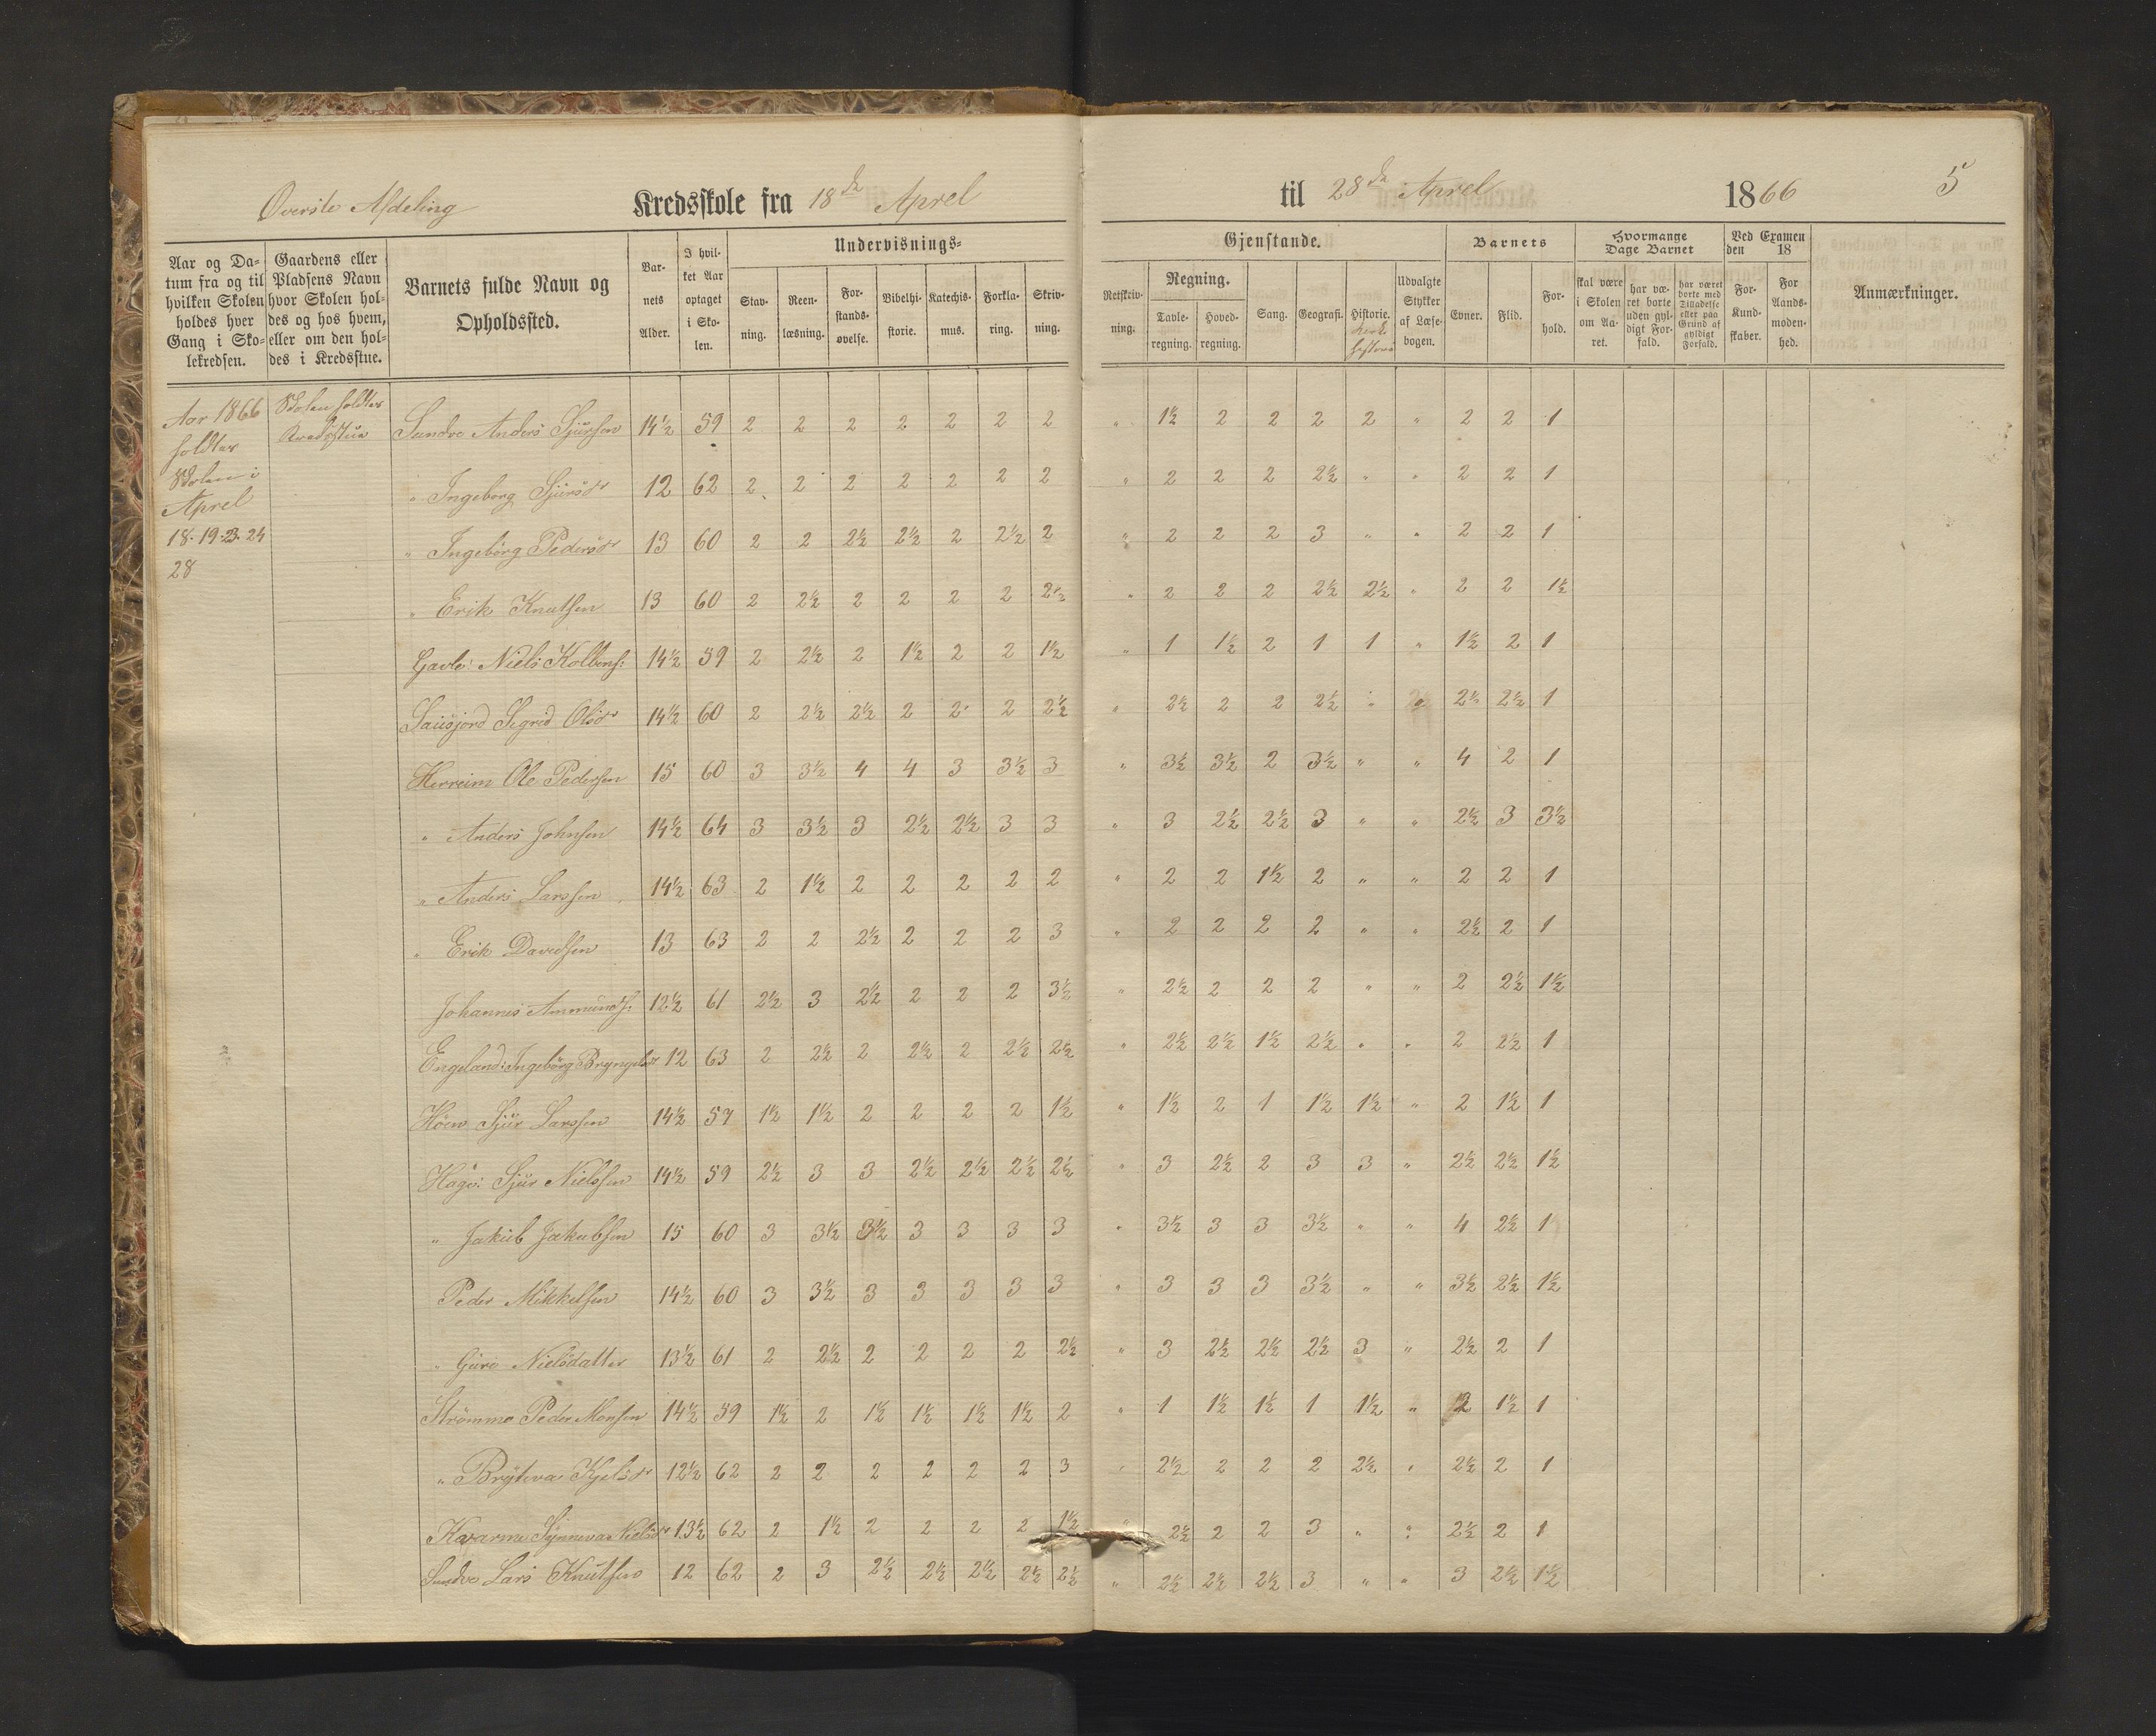 Överste Afdeling Kredsskole fra 18de Aprel til 28de Aprel 1866 5
Aar og Datum fra og til hvilken Skolen holdes hver Gang i Skolekredsen.
Gaardens eller Pladsens Navn hvor Skolen holdes og hos hvem, eller om den holdes i Kredsstue.
Barnets fulde Navn og Opholdssted.
Barnets Alder.
I hvilket Aar optaget i Skolen.
Undervisnings-
Stavning. Reenlæsning. Forstandsøvelse. Bibelhistorie. Katechismus. Forklaring. Skrivning.
Gjenstande.
Retskrivning. Regning. Tavleregning. Hovedregning. Sang. Geografi. Historie. Udvalgte Stykker af Læsebogen.
Barnets
Evner. Flid. Forhold.
Hvormange Dage Barnet
skal være i Skolen om Aaret. har været borte uden gyldigt Forfald. har været borte med Tilladelse eller paa Grund af gyldigt Forfald.
Ved Examen den 18
For Kundskaber. For Aandsmodenhed.
Anmærkninger.
Aar 1866 holdtes Skolen i Aprel 18. 19. 23. 24 28
Skolen holdtes Kredsstue
Sundve Anders Sjursen 14½ 59 2 2 2 2 2 2 2 " 1½ 2 2 2 2 " 2 2 1
" Ingeborg Sjursdr 12 62 2 2 2 2 2 2 2 " 2 2 2 2½ " " 2 2 1
" Ingebörg Pedersdr 13 60 2 2 2½ 2½ 2 2½ 2 " 2 2 2 3 " " 2 2 1
" Erik Knutsen 13 60 2 2½ 2 2 2 2 2½ " 2 2 2 2½ 2½ " 2 2 1½
Gavle: Niels Kolbens: 14½ 59 2 2½ 2 1½ 2 2 1½ " 1 1½ 2 1 1 " 1½ 2 1
Sausjord Sigrid Olsdr 14½ 60 2 2½ 2½ 2 2 2 2½ " 2½ 2 2 2½ " " 2½ 2½ 1
Herreim Ole Pedersen 15 60 3 3½ 4 4 3 3½ 3 " 3½ 3½ 2 3½ " " 4 2 1
" Anders Johnsen 14½ 64 3 3½ 3 2½ 2½ 3 3 " 3 2½ 2½ 3 " " 2½ 3 3½
" Anders Larssen 14½ 63 2 1½ 2 2 2 2 2 " 2 2 1½ 2 " " 2 2 1
" Erik Davidsen 13 63 2 2 2½ 2 2 2 3 " 2 2 2 2 " " 2½ 2 1
Johannes Ammunds: 12½ 61 2½ 3 2½ 2 2 2 3½ " 2½ 2 2 2 " " 2 2½ 1½
Engeland: Ingebörg Bryngelsdr 12 63 2 2½ 2 2½ 2 2½ 2½ " 2½ 2½ 1½ 2½ " " 2 2½ 1
Sjur Larssen 14½ 59 1½ 1½ 2 2 2 2 1½ " 1½ 2 1 1½ 1½ " 2 1½ 1
Häge: Sjur Nielssen 14½ 59 2½ 3 3 2½ 2½ 2½ 2½ " 3 2½ 2 3 3 " 2½ 2½ 1½
" Jakub Jakubsen 15 60 3 3½ 3½ 3 3 3 3 " 3½ 3 3 3½ " " 4 2½ 1
Peder Mikkelsen 14½ 60 3 3½ 3 3 3 3 3 " 3 3 3 3½ " " 3½ 2½ 1½
" Guro Nielsdatter 13½ 61 2 2½ 2 2 2 2 2½ " 3 2½ 2½ 2½ 3 " 2½ 2 1
Strömmo Peder Monsen 14½ 59 1½ 2 1½ 1½ 1½ 1½ 2 " 1 1½ 1½ 1 1½ " 2 1½ 1
" Bryteva Kjelsdr 12½ 62 2 2 2 2 2 2 3 " 2½ 2 2 2 2½ " 2½ 2 1
Kvarme Synneva Nielsdr 13½ 62 2 1½ 2 2 2 2 1½ " 2½ 2 2 3 " " 2½ 2 1
Sundve Lars Knutsen 12 62 2 3 2½ 2½ 2½ 2½ 2½ " 2½ 2½ 2½ 3 " " 3 2½ 1½